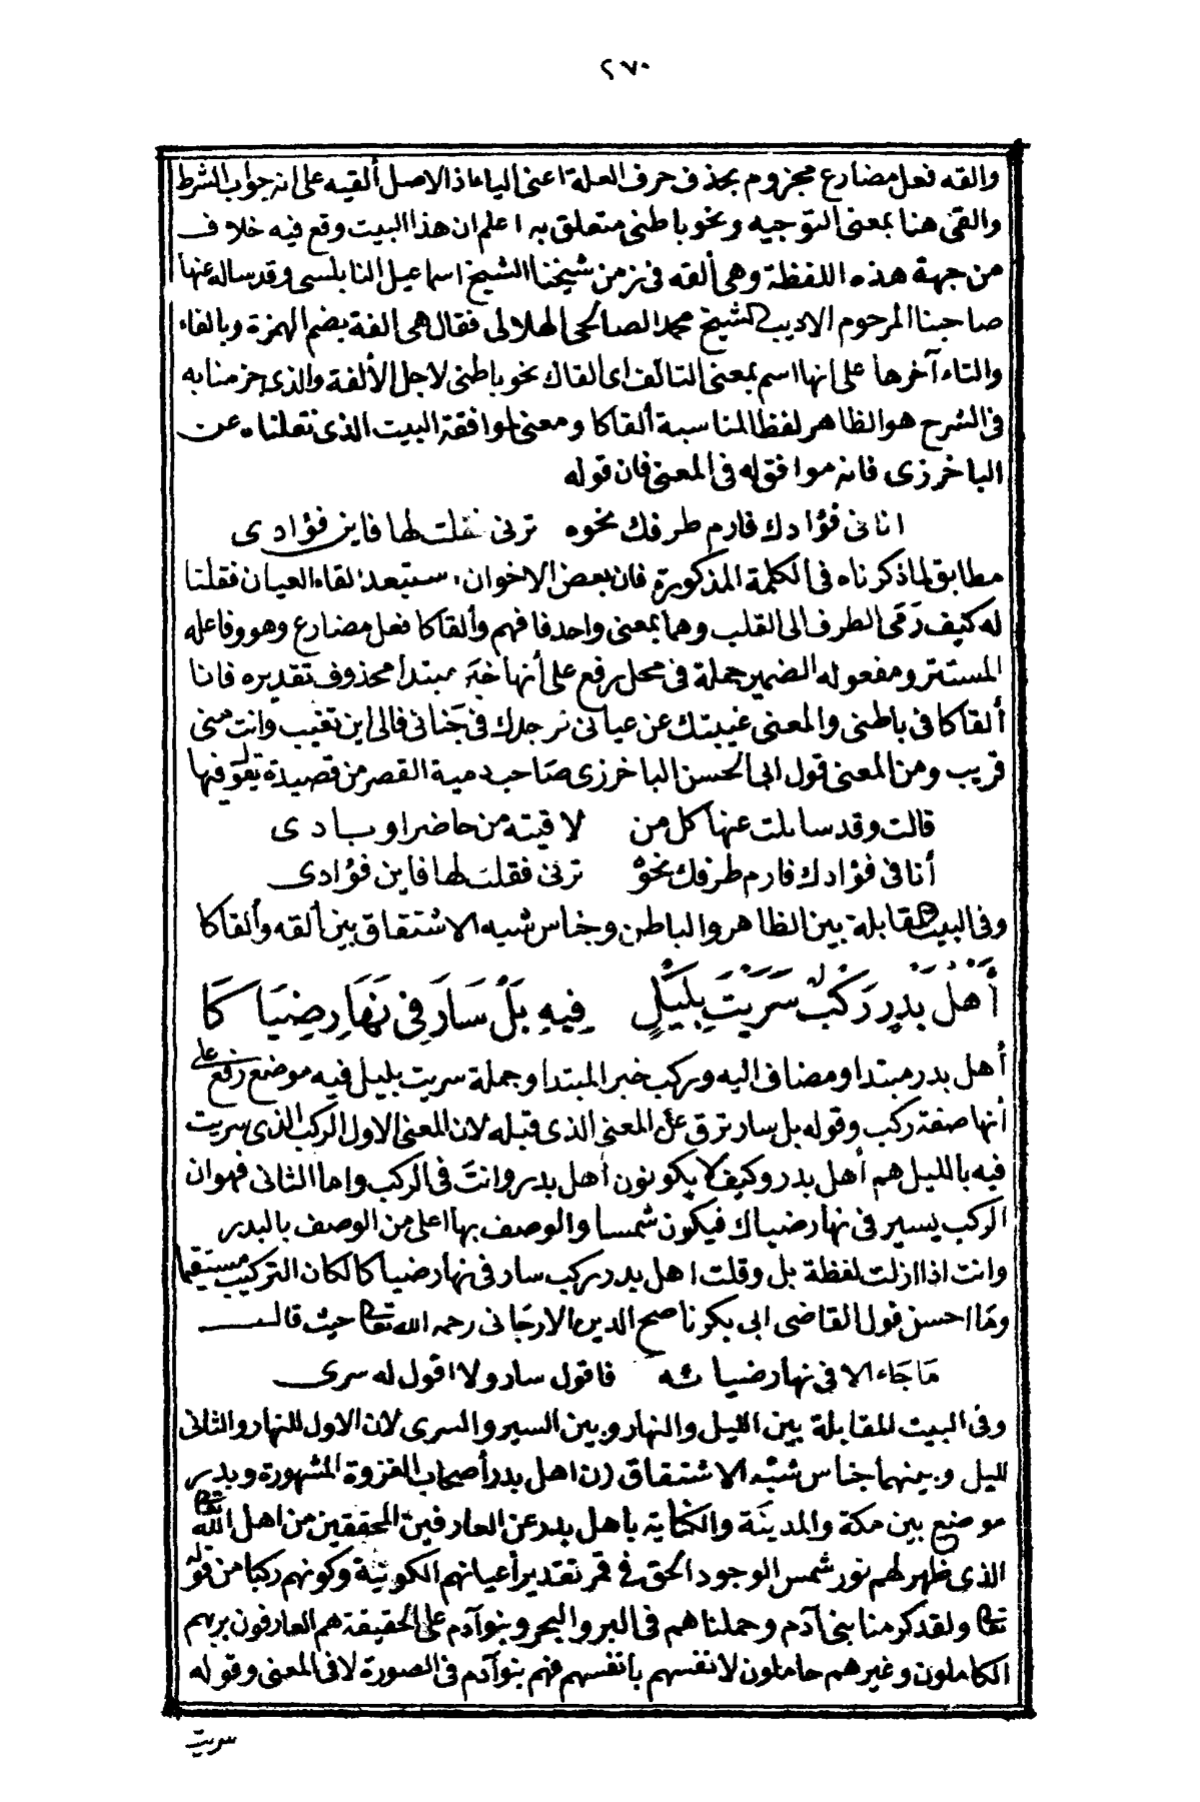 ٢٧٠
والقه فعل مضارع مجزوم بحذف حرف العلة اعنى الياء اذ الاصل ألقيه على انه جواب الشرط
والقى هنا بمعنى التوجيه ونحو باطنى متعلق به اعلم ان هذا البيت وقع فيه خلاف
من جهة هذه اللفظة وهى ألقه فى زمن شيخنا الشيخ اسماعيل النابلسى وقد ساله عنها
صاحبنا المرحوم الاديب الشيخ محمد الصالحى الهلالى فقال هى الفة بضم الهمزة وبالفاء
والتاء آخرها على انها اسم بمعنى التالف اى القاك نحو باطنى لاجل الألفة والذى جزمنا به
فى الشرح هو الظاهر لفظا لمناسبة ألقاكا ومعنى لموافقة البيت الذى نقلناه عن
الباخرزى فانه موافق له فى المعنى فان قوله
انا فى فؤادك فارم طرفك نحوه ترنى فقلت لها فاين فؤادى
مطابق لما ذكرناه فى الكلمة المذكورة فان بعض الاخوان استبعد القاء العيان فقلنا
له كيف رمى الطرف الى القلب وهما بمعنى واحد فافهم وألقاكا فعل مضارع وهو وفاعله
المستتر ومفعوله الضمير جملة فى محل رفع على أنها خبر مبتدأ محذوف تقديره فانا
ألقاكا فى باطنى والمعنى غيبتك عن عيانى نرجدك فى جنانى فالى اين تغيب وانت منى
قريب ومن المعنى قول ابى الحسن الباخرزى صاحب دمية القصر من قصيدة يقول فيها
قالت وقد ساءلت عنها كل من لاقيته من حاضر او بادى
أنا فى فؤادك فارم طرفك نحوه ترنى فقلت لها فاين فؤادى
وفى البيت المقابلة بين الظاهر والباطن وجناس شبيه الاشتقاق بين ألقه وألقاكا
أَهْلُ بَدْرٍ رَكْبٌ سَرَيْتَ بِلَيْلٍ فِيهِ بَلْ سَارَ فِى نَهَارِ ضِيَاكَا
أهل بدر مبتدا ومضاف اليه وركب خبر المبتدا وجملة سريت بليل فيه موضع رفع على
أنها صفة ركب وقوله بل سار ترق على المعنى الذى قبله لان المعنى الاول الركب الذى سريت
فيه بالليل هم أهل بدر وكيف لا يكونون أهل بدر وانت فى الركب واما الثانى فهو ان
الركب يسير فى نهار ضياك فيكون شمسا والوصف بها اعلى من الوصف بالبدر
وانت اذا ازلت لفظة بل وقلت اهل بدر ركب سار فى نهار ضياكا لكان التركيب مستقيما
وما احسن قول القاضى ابى بكر ناصح الدين الارجانى رحمه الله تعالى حيث قال
مَا جَاء الا فى نهار ضيائه فاقول سار ولا اقول له سرى
وفى البيت المقابلة بين الليل والنهار وبين السير والسرى لان الاول للنهار والثانى
لليل وبينهما جناس شبه الاشتقاق (ن) اهل بدر أصحاب الغزوة المشهورة وبدر
موضع بين مكة والمدينة والكناية باهل بدر عن العارفين المحققين من اهل الله تعالى
الذى ظهر لهم نور شمس الوجود الحق فى قمر تقدير أعيانهم الكونية وكونهم ركبا من قوله
تعالى ولقد كرمنا بنى آدم وحملناهم فى البر والبحر وبنو آدم على الحقيقة هم العارفون بربهم
الكاملون وغيرهم حاملون لانفسهم بانفسهم فهم بنو آدم فى الصورة لا فى المعنى وقوله
سريت